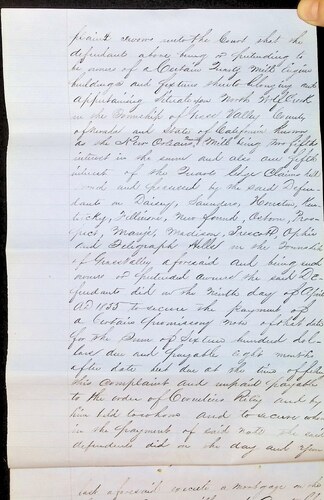 plaint avers unto the Court that the
defendants above being or pretending to
be owners of a Certain Quartz Mill Engine
buildings and fixtures thereto belonging and
appertaining Situate on North Wolf Creek
in the Township of Grass Valley County
of Nevada and State of California known
as the New Orleans Mill being two fifths
interest in the same and also one fifth
interest of the Quartz Ledge Claims
and possessed by the said Defen-
dants on Daisey, Saunders, Houston, Ken-
tucky, Illinois, New found, Osborn, Pros-
pect, Madison, Prescott, Ophir
and Telegraph Hills in the Township
of Grass Valley aforesaid and being such
owners or pretended owners the said De-
fendants did on the Ninth day of April
AD 1855 to secure the payment of
a Certain promissory note of that date
for the Sum of Sixteen hundred dol-
lars due and payable Eight months
after date and due at the time of filing
this Complaint and unpaid payable
to the order of Cornelius Riley and by
him and to secure
in the payment of said Note the said
defendants did on the day and year
aforesaid execute a mortgage on the